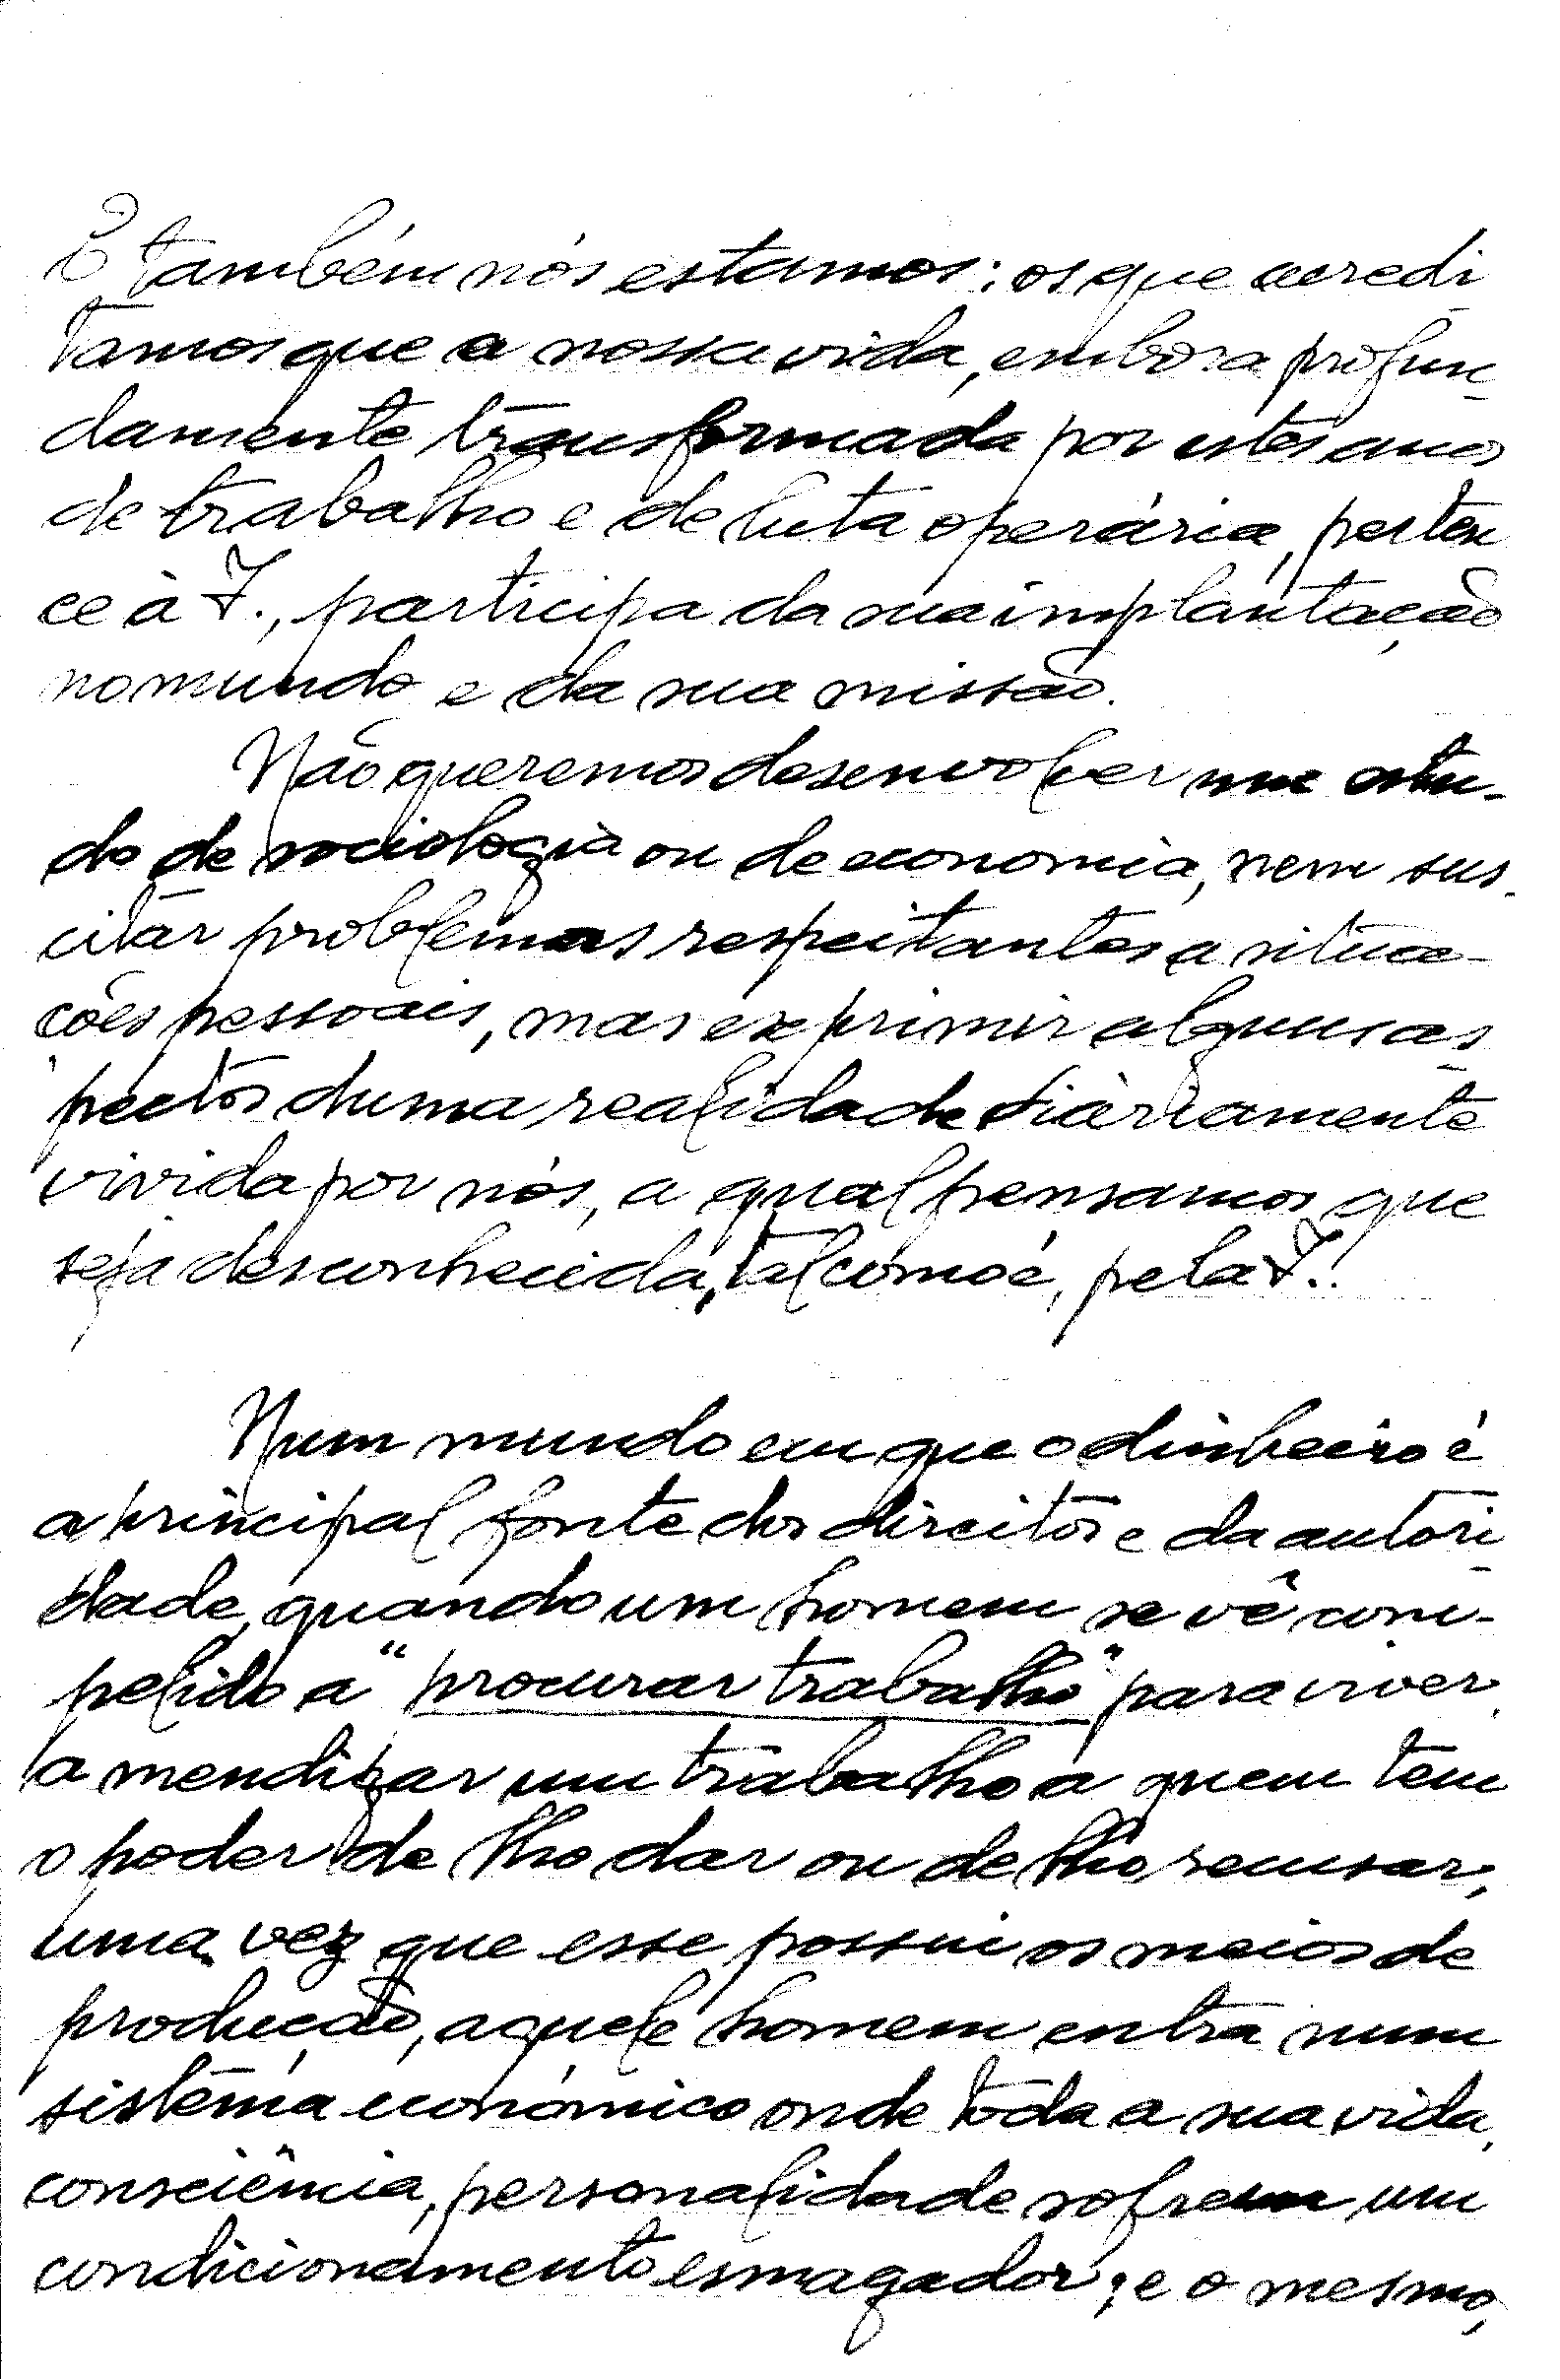 E também nós estamos: os que acredi-
tamos que a nossa vida, embora profun-
damente transformada por estes anos
de trabalho e de luta operária, perten
ce à I., participa da sua implantação
no mundo e da sua missão.
Não queremos desenvolver um estu-
do de sociologia ou de economia, nem sus-
citar problemas respeitantes a situa-
ções pessoais, mas exprimir alguns as-
pectos duma realidade diàriamente
vivida por nós, a qual pensamos que
seja desconhecida, tal como é, pela I..
Num mundo em que o dinheiro é
a principal fonte dos direitos e da autori-
dade, quando um homem se vê com-
pelido a "procurar trabalho" para viver,
a mendigar um trabalho a quem tem
o poder de lho dar ou de lho recusar,
uma vez que esse possui os meios de
produção, aquele homem entra num
sistema económico onde toda a sua vida,
consciência, personalidade sofrem um
condicionamento esmagador; e o mesmo,